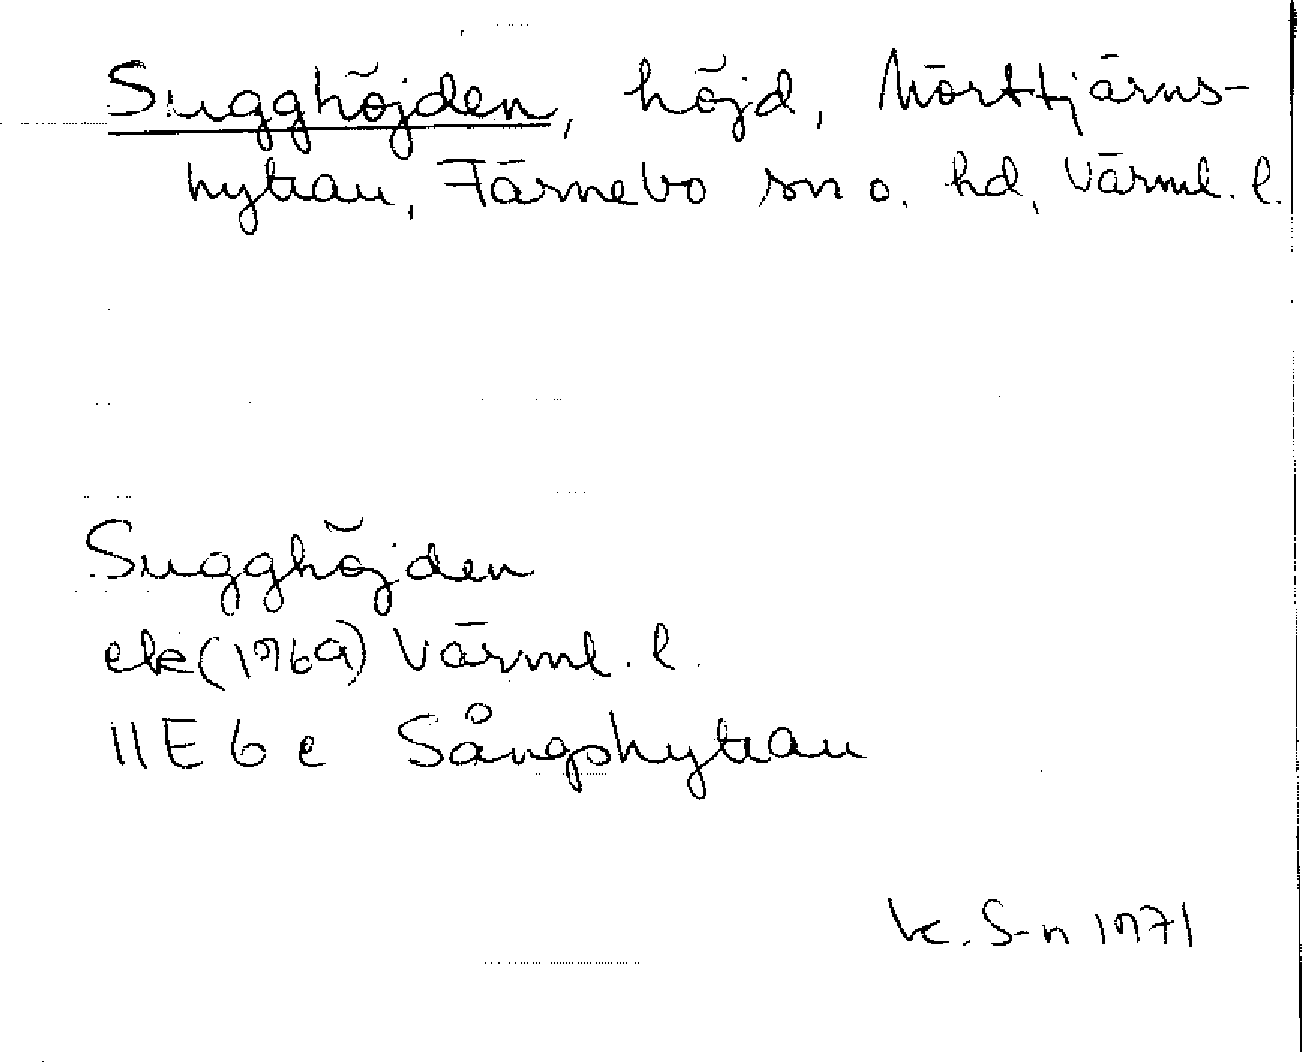 Sugghöjden, höjd, Mörttjärns-
hyttan, Färnebo sn o. hd, Värml. l.
Sugghöjden
ek (1969) Värml. l.
11E 6e Sångshyttan
K. S-n 1971